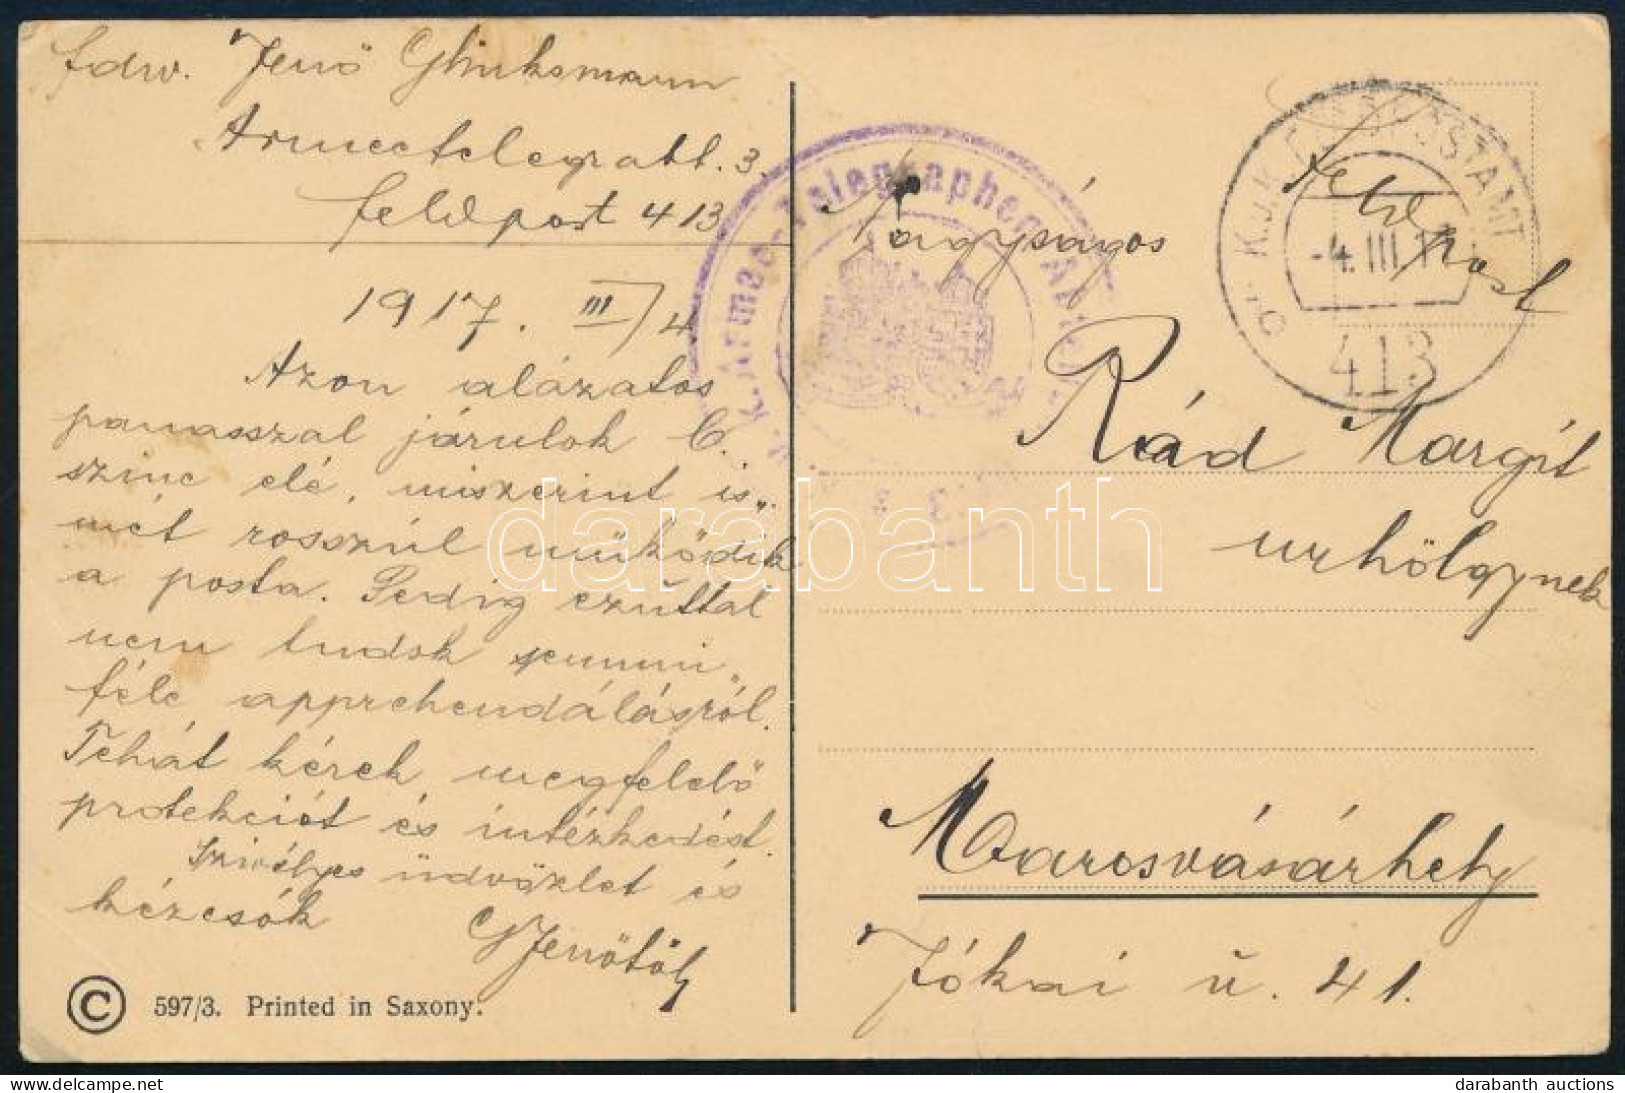 fdw. Jenő Glücksmann
Armeetelegrabt. 3.
Feldpost 413
1917. III/4
Azon alázatos
panasszal járulok b.
szine elé, miszerint is„
mét rosszúl működik
a posta. Pedig ezúttal
nem tudok semmi„
féle apprehendálásról.
Tehát kérek megfelelő
protekciót és intézkedést.
Szivélyes üdvözlet és
kézcsók
GJenőtől
© 597/3. Printed in Saxony.
K. Armee-Telegraphen Abt
3
K.u.K. FELDPOSTAMT
-4. III. 1
413
Nagyságos
Rád Margit
urhölgynek
Marosvásárhely
Jókai u. 41.
darabanth
https://www.darabanth.com/
darabanth auctions